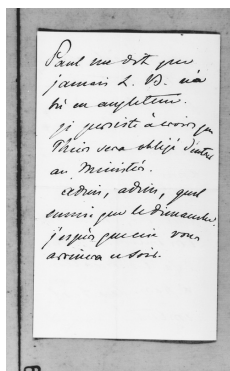 Paul me dit que
jamais L. B. n'a
été en angleterre.
je persiste à croire que
Thiers sera obligé d'entrer
au Ministère.
adieu, adieu, quel
ennui que le dimanche.
j'espère que ceci vous
arrivera ce soir.